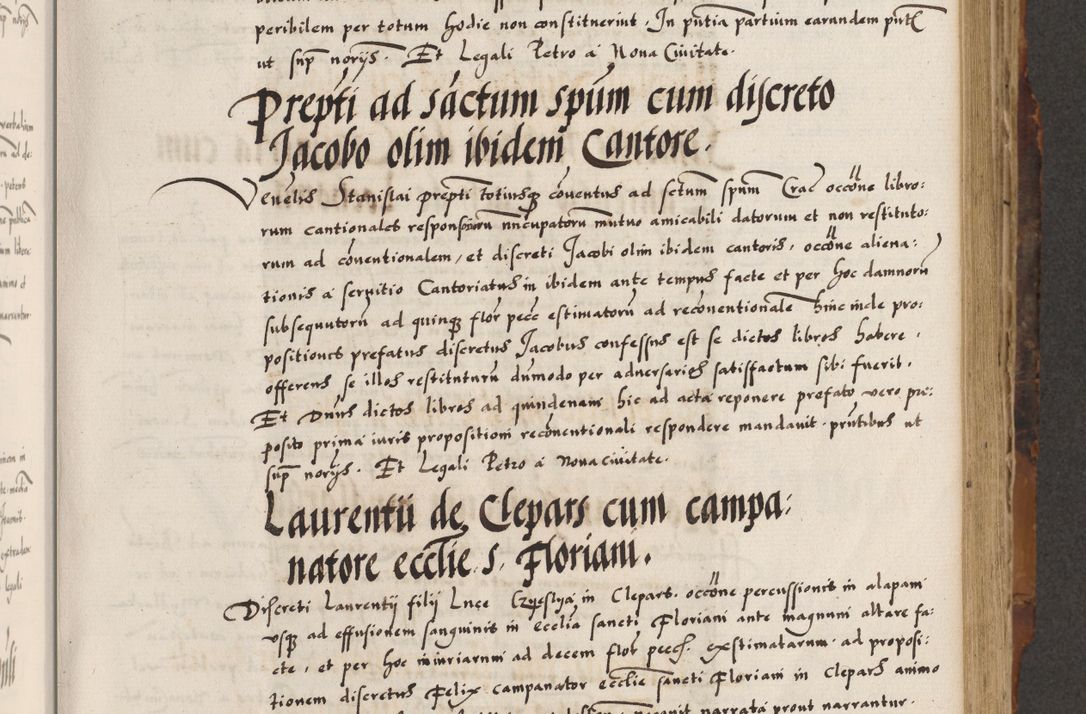 peribilem per totum hodie non constituerint. In pñtia partium earundem pñtt
ut supª norijs. Et Legali Petro á Nova Civitate.
Prepti ad sãctum spũm cum discreto
Jacobo olim ibidem Cantore.
Venelis Stanislai prepti totiusqz cõventus ad sctum spũm Crac occõne libro:
rum cantionales responsoriorũ nũcupatorũ mutuo amicabili datorum et non restituto:
rum ad cõventionalem, et discreti Jacobi olim ibidem cantoris, occõne aliena:
tionis á servitio Cantoriatus in ibidem ante tempus facte et per hoc damnorũ
subsequutorũ ad quinqz flor pecc estimatorũ ad recõventionale hinc inde pro:
positiones prefatus discretus Jacobus confessus est se dictos libros habere,
offerens se illos restituturũ dũmodo per adversarios satisfactum sibi fuerit.
Et Dnus dictos libros ad quindenam hic ad acta reponere prefato vero pre:
posito prima iuris propositioni recõventionali respondere mandavit. pñtibus ut
supª norijs. Et Legali Petro á Nova civitate.
Laurentii de Clepars cum campa:
natore ecclie s. Floriani.
Discreti Laurentij filij Luce in Clepars. occõne percussionis in alapam
usqz ad effusionem sanguinis in ecclia sancti Floriani ante magnum altare fa:
cte, et per hoc iniuriarum ad decem flor pecc. exstimatarum. ad proposi:
tionem discretus Felix campanator ecclie sancti Floriani in Clepars animo
negavit narrata prout narrantur.